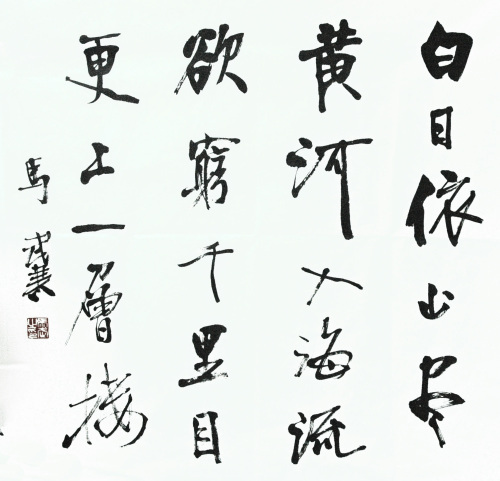 白日依山尽
黄河入海流
欲窮千里目
更上一層樓
馬